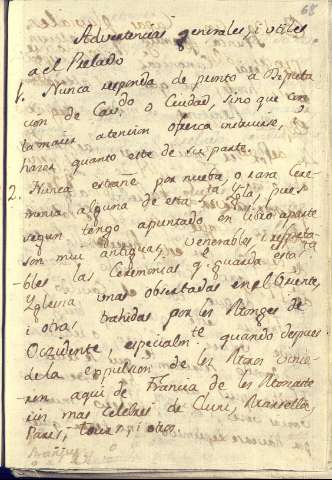 68
Advertencias generales, i utiles
a el Prelado
1. Nunca responda de pronto a Diputa
cion de Cav.do o Ciudad, sino que con
la maior atencion ofrezca instruirse,
hazer quanto este de su parte.
2. Nunca estrañe por nueba, o rara Cere-
monia alguna de esta S.ta Ygl.a, pues
segun tengo apuntado en libro aparte
son mui antiguas, venerables i respeta-
bles las Ceremonias q.e guarda esta S.ta
Yglesia unas observadas en el Oriente,
i otras trahidas por los Monges de
Occidente, especialm.te quando despues
de la expulsion de los Moros vinie-
ron aqui de Francia de los Monaste
rios mas celebres de Cluni, Marsella,
Paris, Tours, i otros.